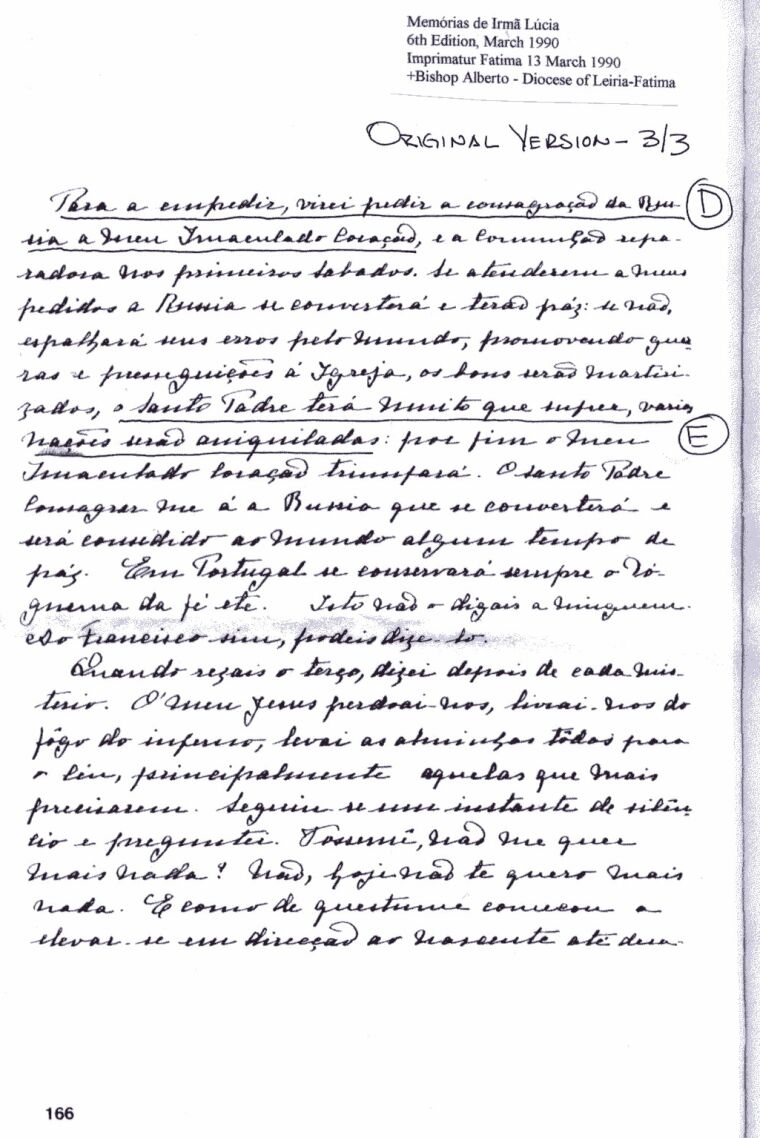 Memórias de Irmã Lúcia
6th Edition, March 1990
Imprimatur Fatima 13 March 1990
+Bishop Alberto - Diocese of Leiria-Fatima
ORIGINAL VERSION - 3/3
Para a empedir, virei pedir a consagração da Rus- D
sia a meu Imaculado Coração, e a Comunhão repa-
radora nos primeiros sabados. Se atenderem a meus
pedidos a Russia se converterá e terão páz: se não,
espalhará seus erros pelo mundo, promovendo gue
ras e presseguições á Igreja, os bons serão martiri-
zados, o Santo Padre terá muito que sufrer, varias
nações serão aniquiladas: por fim o meu E
Imaculado Coração triumfará. O Santo Padre
Consagrar me á a Russia que se converterá e
será consedido ao mundo algum tempo de
páz. Em Portugal se conservará sempre o Dó-
guema da fé etc. Isto não o digais a ninguem.
Ao Francisco sim, podeis dize-lo.
Quando rezais o terço, dizei depois de cada mis-
terio. O' meu Jesus perdoai-nos, livrai-nos do
fôgo do inferno, levai as alminhas tôdas para
o Céu, principalmente aquelas que mais
precisarem. Seguiu se um instante de silên
cio e preguntei. Vossemê, não me quer
mais nada? Não, hoje não te quero mais
nada. E como de questume começou a
elevar-se em direcção ao nascente até desa-
166